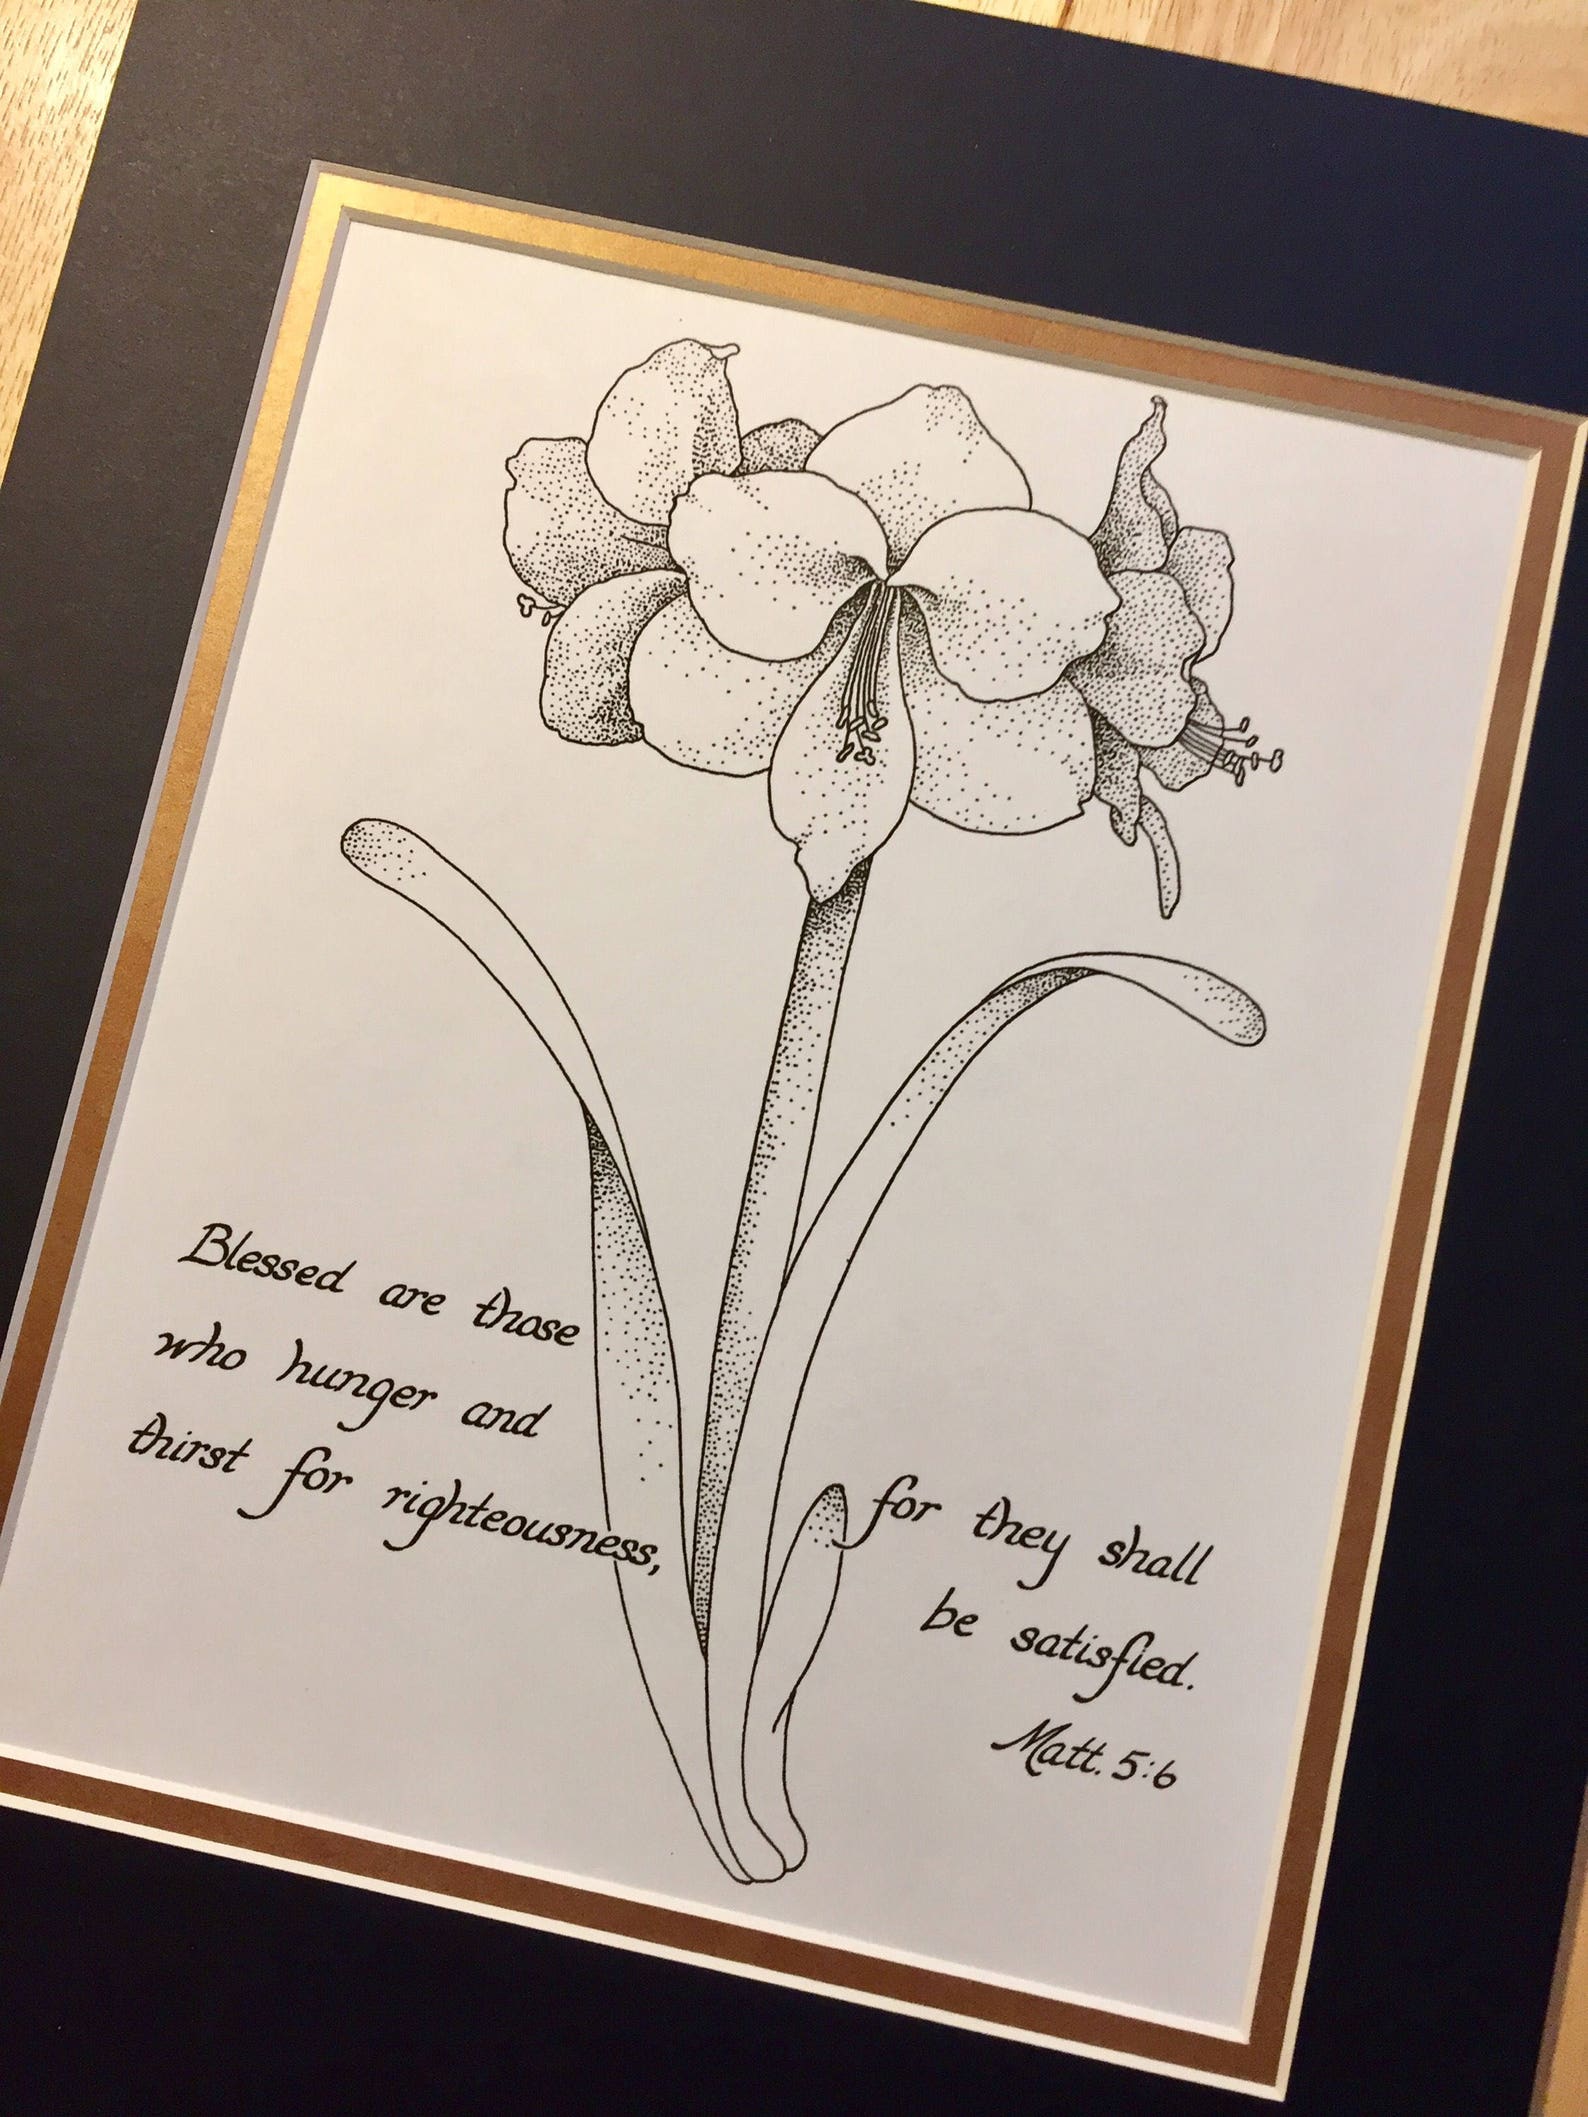 Blessed are those
who hunger and
thirst for righteousness,
for they shall
be satisfied.
Matt. 5:6